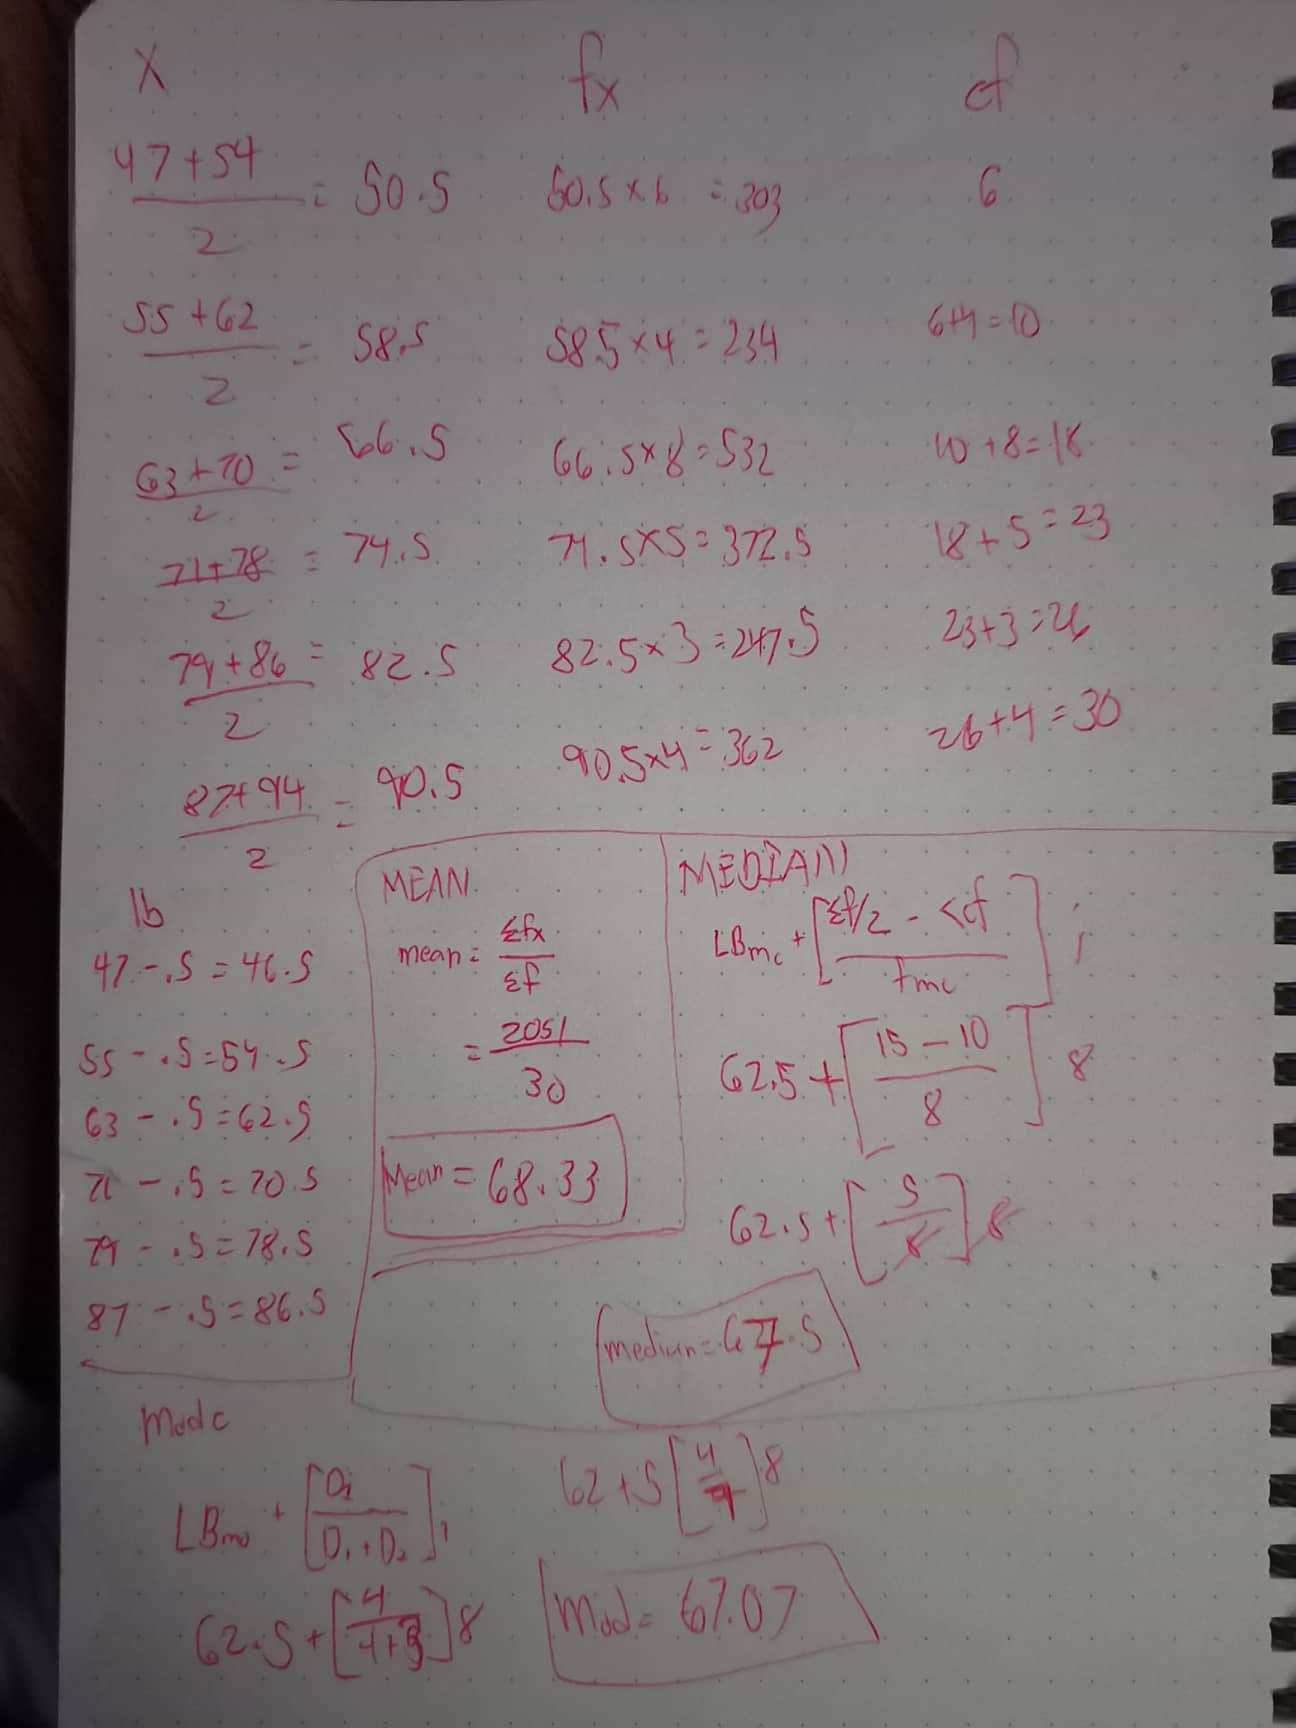 X fx cf
47+54
2
= 50.5 50.5 x 6 = 303 6
55+62
2
= 58.5 58.5 x 4 = 234 6+4=10
63+70
2
= 66.5 66.5 x 8 = 532 10+8=18
71+78
2
= 74.5 74.5 x 5 = 372.5 18+5=23
79+86
2
= 82.5 82.5 x 3 = 247.5 23+3=26
87+94
2
= 90.5 90.5 x 4 = 362 26+4=30
lb
47 - .5 = 46.5
55 - .5 = 54.5
63 - .5 = 62.5
71 - .5 = 70.5
79 - .5 = 78.5
87 - .5 = 86.5
MEAN
mean = Σfx
Σf
= 2051
30
Mean = 68.33
MEDIAN
LBmc + [Σf/2 - <cf
fmc
] i
62.5 + [15 - 10
8
] 8
62.5 + [5
8
] 8
median = 67.5
Mode
LBmo + [D1
D1 + D2
] i
62.5 + [4
4+3
] 8
62+5 [4
7
] 8
Mod = 67.07